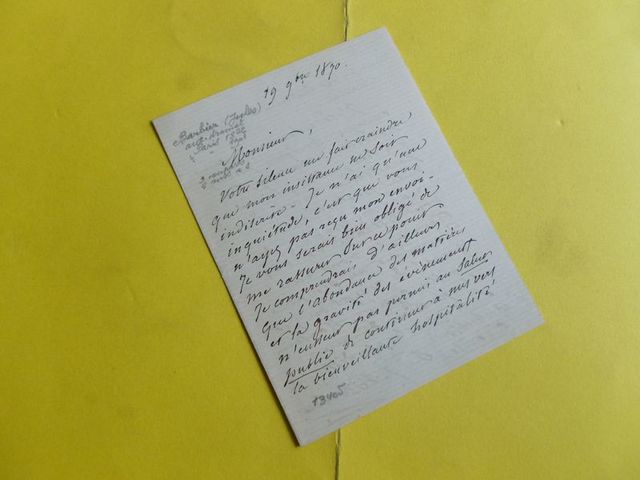 19 9bre 1870.
Barbier (Jules)
aut. dramat
Paris 1822
Monsieur,
Votre silence me fait craindre
que mon insistance ne soit
indiscrète - Je n'ai qu'une
inquiétude, c'est que vous
n'ayez pas reçu mon envoi -
Je vous serais bien obligé de
me rassurer sur ce point
Je comprendrais d'ailleurs
que l'abondance des matières
et la gravité des évènements
n'eussent pas permis au Salut
public de continuer à mes vers
la bienveillante hospitalité
13405